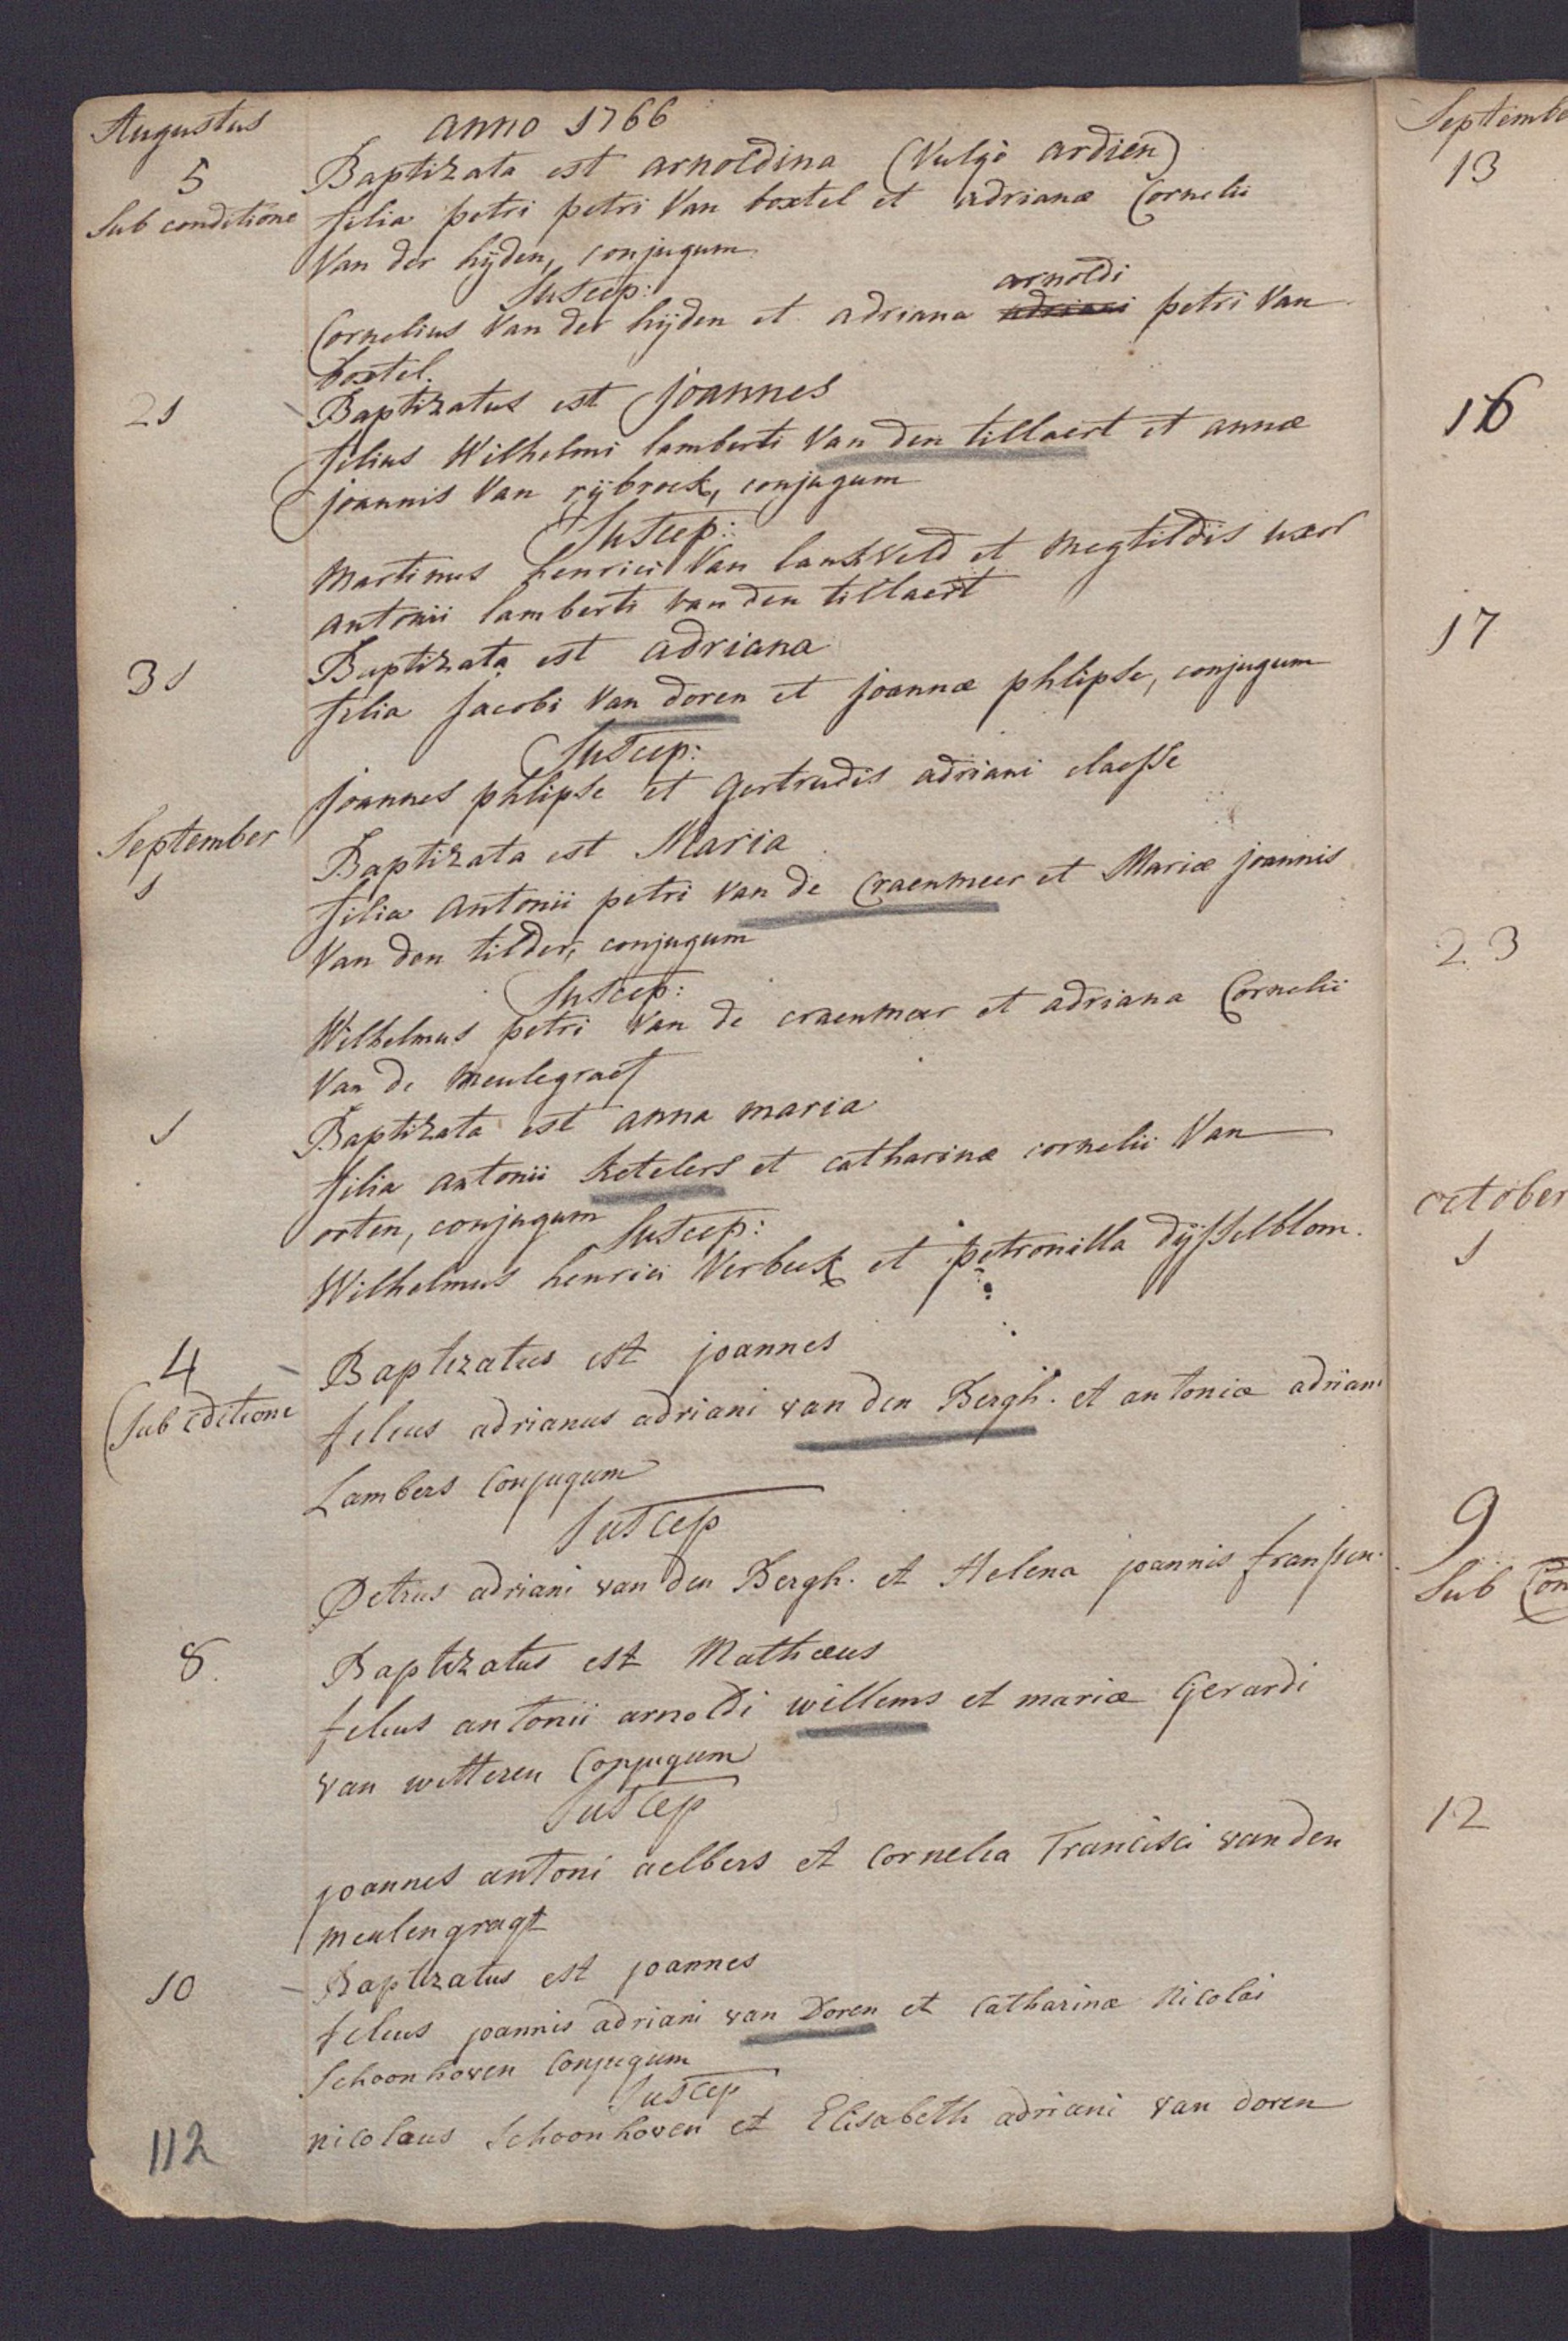 Augustus anno 1766
5 Baptizata est arnoldina (Vulgò ardien)
sub conditione filia petri petri Van boxtel et adrianæ Cornelii
Van der hijden, conjugum
Suscep:
arnoldi
Cornelius Van der hijden et adriana adriani petri Van
boxtel.
21 Baptizatus est joannes
filius Wilhelmi lamberti Van den tillaert et annæ
joannis Van rijbroek, conjugum
Suscep:
Martinus henrici Van lankveld et Megtildis uxor
antonii lamberti van den tillaert
31 Baptizata est adriana
filia Jacobi Van doren et joannæ phlipse, conjugum
Suscep:
joannes phlipse et gertrudis adriani claesse
September Baptizata est Maria
1 filia antonii petri Van de Craenmeer et Mariæ joannis
Van den tilder, conjugum
Suscep:
Wilhelmus petri Van de craenmeer et adriana Cornelii
Van de Meulegraef
1 Baptizata est anna maria
filia antonii Ketelers et catharinæ cornelii Van
orten, conjugum
Suscep:
Wilhelmus henrici Verbeek et petronilla dijsselblom.
4 Baptizatus est joannes
sub cditione filius adrianus adriani van den Bergh. et antoniæ adriani
Lambers Conjugum
Suscep
Petrus adriani van den Bergh. et Helena joannis franssen.
8. Baptizatus est Mathæus
filius antonii arnoldi willems et mariæ Gerardi
van wetteren Conjugum
Suscep
joannes antoni aelbers et Cornelia Francisci van den
meulengragt
10 Baptizatus est joannes
filius joannis adriani van Doren et Catharinæ Nicolai
Schoonhoven Conjugum
Suscep
nicolaus Schoonhoven et Elisabeth adriani van doren
112
Septembe
13
16
17
23
october
1
9
Sub Con
12